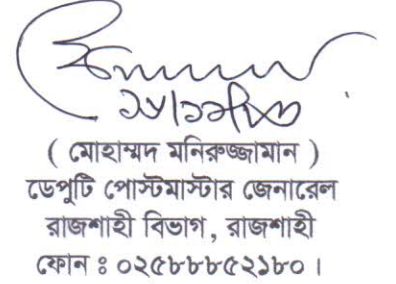 ( মোহাম্মদ মনিরুজ্জামান )
ডেপুটি পোস্টমাস্টার জেনারেল
রাজশাহী বিভাগ, রাজশাহী
ফোন ঃ ০২৫৮৮৮৫২১৮০।